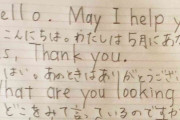 ello. May I help y
こんにちは。わたしは5月にあた
s, Thank you.
はい。あのときはありがとうござい
hat are you looking
どこをみて言っているのですか